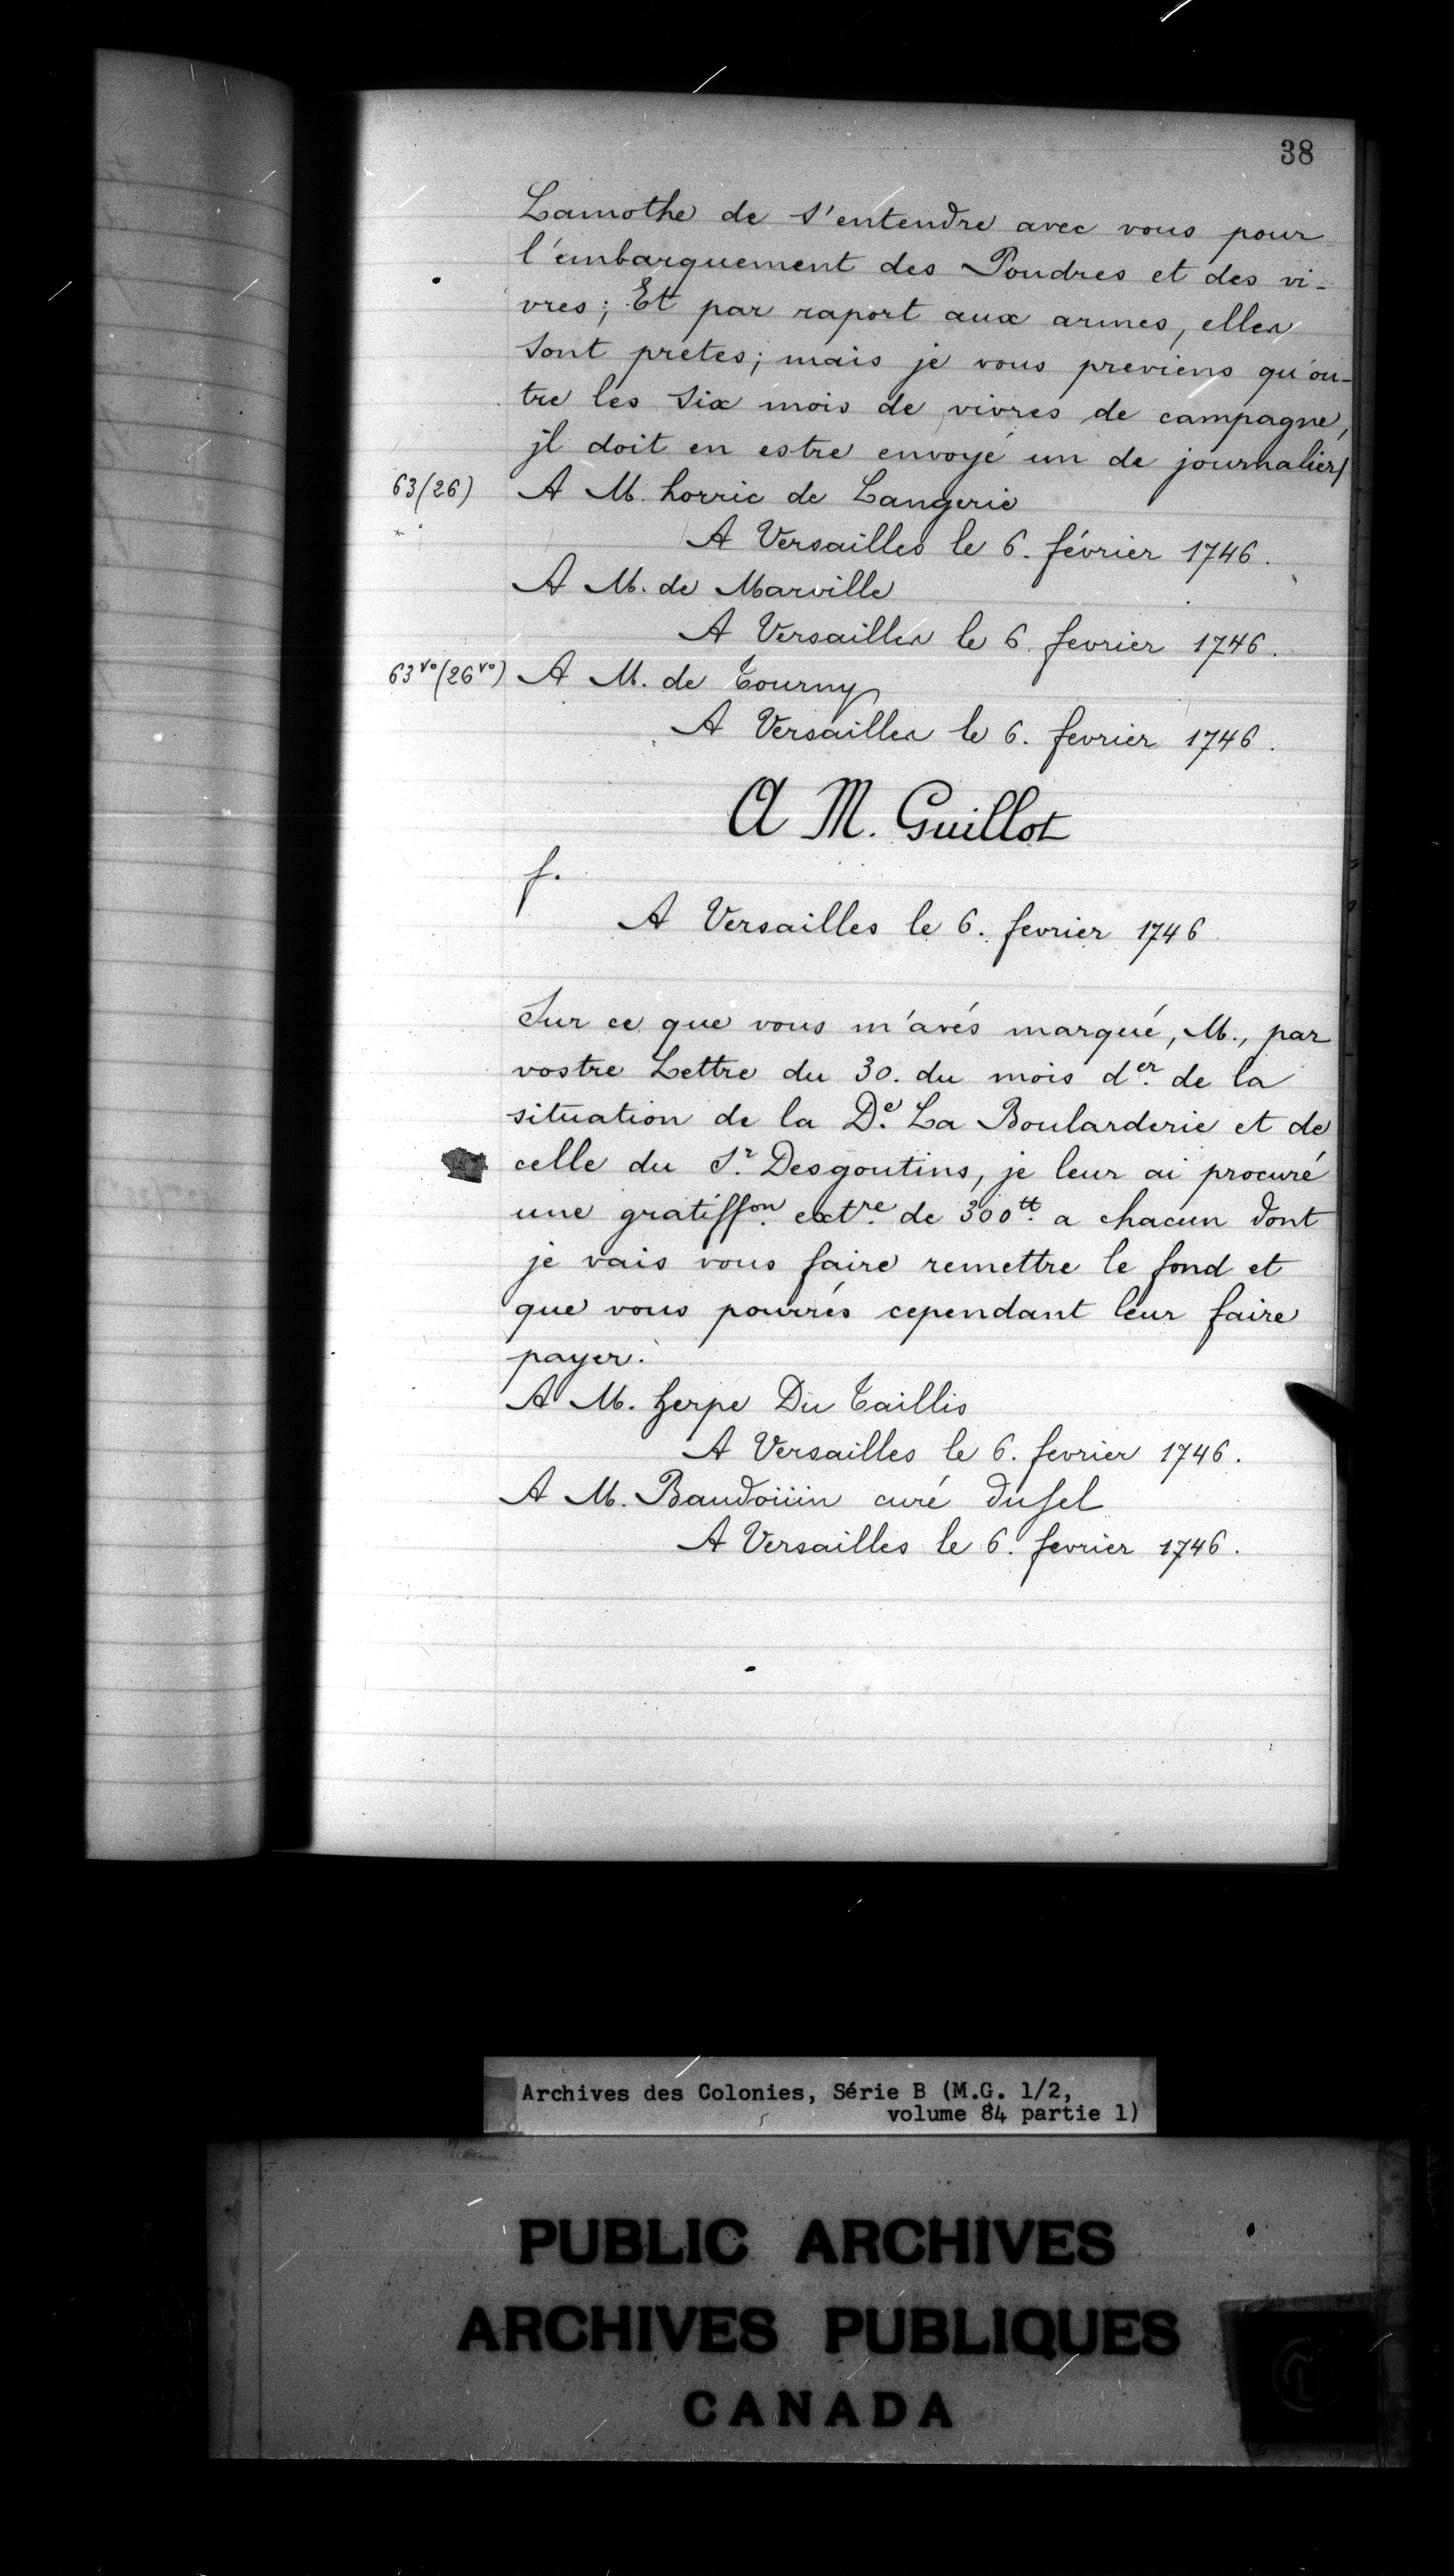 38
Lamothe de s'entendre avec vous pour
l'embarquement des Poudres et des vi-
vres; Et par raport aux armes, elles
sont pretes; mais je vous previens qu'ou-
tre les six mois de vivres de campagne,
jl doit en estre envoyé un de journalier/
63(26) A M. horric de Langerie
A Versailles le 6. février 1746.
A M. de Marville
A Versailles le 6. fevrier 1746.
63vo(26vo) A M. de Tourny
A Versailles le 6. fevrier 1746.
A M. Guillot
f.
A Versailles le 6. fevrier 1746.
Sur ce que vous m'avés marqué, M., par
vostre Lettre du 30. du mois der. de la
situation de la De. La Boularderie et de
celle du Sr. Desgoutins, je leur ai procuré
une gratiffon. extre. de 300tt. a chacun dont
je vais vous faire remettre le fond et
que vous pourrés cependant leur faire
payer.
A M. herpe Du Taillis
A Versailles le 6. fevrier 1746.
A M. Baudoüin curé dusel
A Versailles le 6. fevrier 1746.
Archives des Colonies, Série B (M.G. 1/2,
volume 84 partie 1)
PUBLIC ARCHIVES
ARCHIVES PUBLIQUES
CANADA